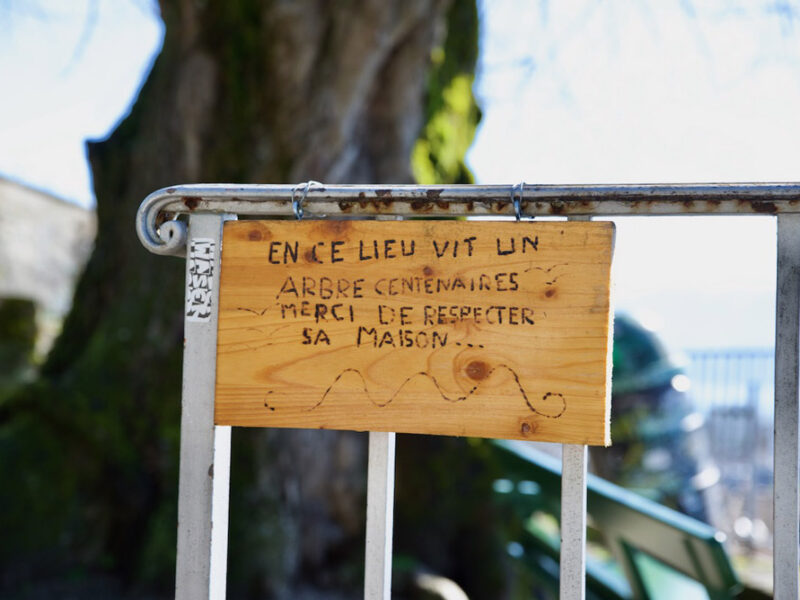 EN CE LIEU VIT UN
ARBRE CENTENAIRES
MERCI DE RESPECTER
SA MAISON...